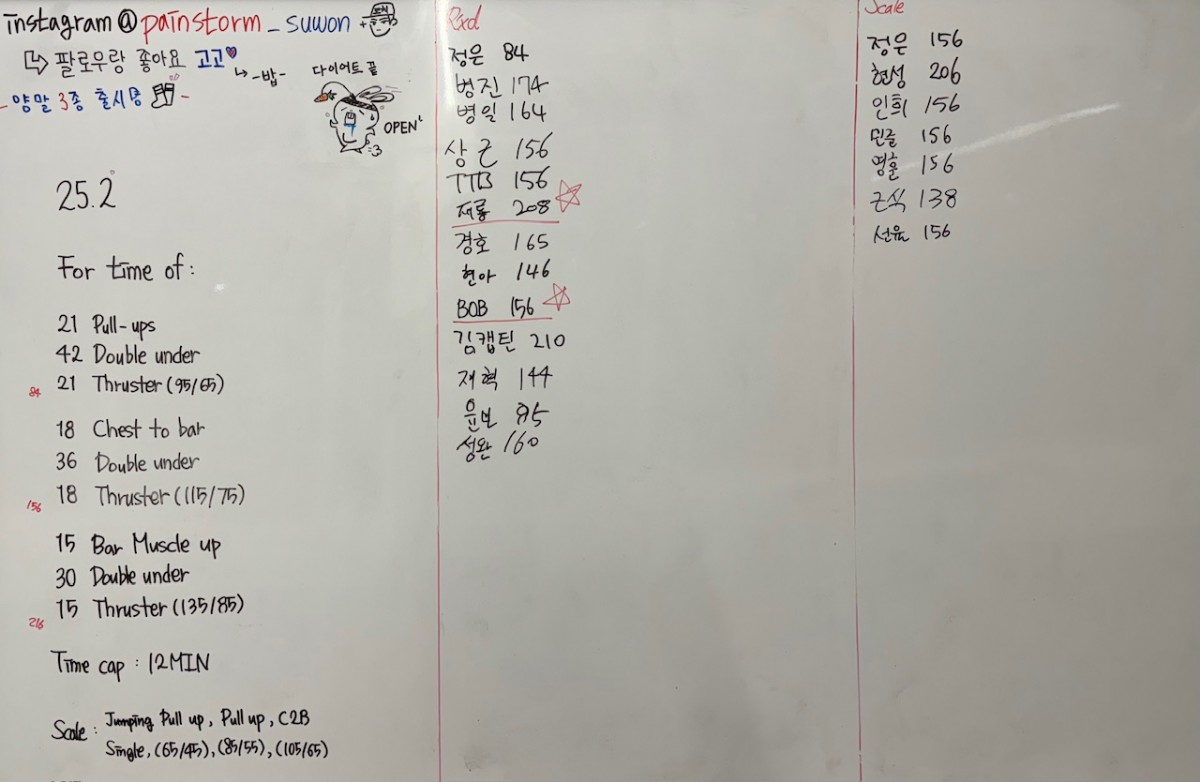 instagram@painstorm_suwon +
팔로우랑 좋아요 고고
-밥-
- 양말 3종 출시중 -
다이어트 끝
OPEN
25.2
For time of:
21 Pull-ups
42 Double under
84 21 Thruster (95/65)
18 Chest to bar
36 Double under
156 18 Thruster (115/75)
15 Bar Muscle up
30 Double under
216 15 Thruster (135/85)
Time cap : 12MIN
Scale : Jumping Pull up, Pull up, C2B
Single, (65/45), (85/55), (105/65)
Rxd
정은 84
병진 174
병일 164
상근 156
TTB 156
재룡 208
경호 165
현아 146
BOB 156
김캡틴 210
재혁 144
윤보
성완 160
Scale
정은 156
현성 206
인희 156
156
영훈 156
근식 138
선율 156